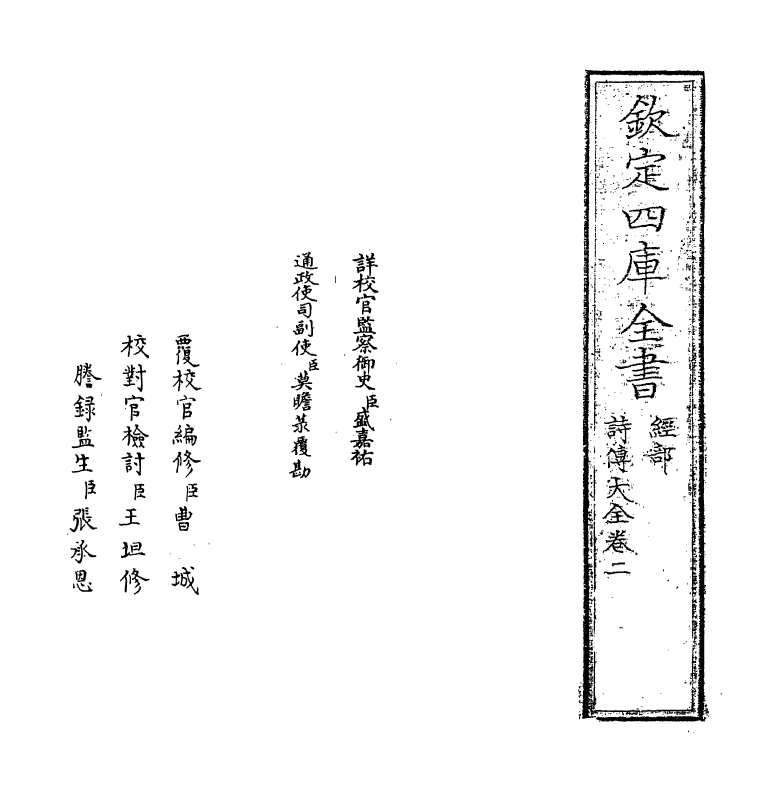 欽定四庫全書
經部
詩傳大全卷二
詳校官監察御史臣盛嘉祐
通政使司副使臣莫瞻菉覆勘
覆校官編修臣曹城
校對官檢討臣王坦修
謄録監生臣張承恩